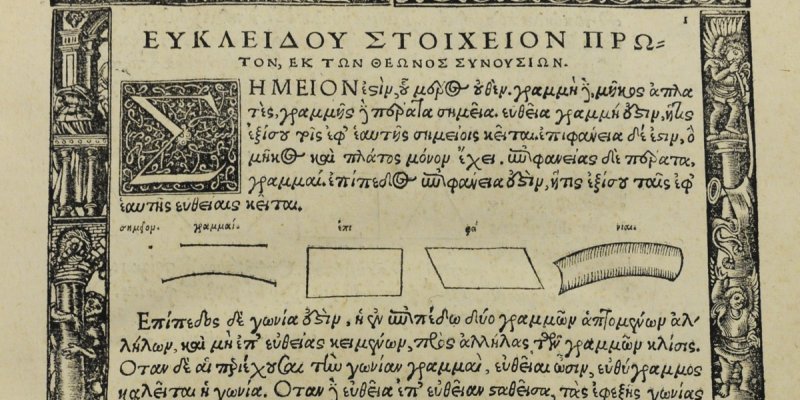 1
ΕΥΚΛΕΙΔΟΥ ΣΤΟΙΧΕΙΟΝ ΠΡΩ=
ΤΟΝ, ΕΚ ΤΩΝ ΘΕΩΝΟΣ ΣΥΝΟΥΣΙΩΝ.
ΣΗΜΕΙΟΝ ἐστὶν, οὗ μέρος οὐθέν. γραμμὴ δὲ, μῆκος ἀπλα
τὲς, γραμμῆς δὲ πέρατα σημεῖα. εὐθεῖα γραμμή ἐστιν, ἥτις
ἐξίσου τοῖς ἐφ' ἑαυτῆς σημείοις κεῖται. ἐπιφάνεια δέ ἐστιν, ὃ
μῆκος καὶ πλάτος μόνον ἔχει. ἐπιφανείας δὲ πέρατα,
γραμμαί. ἐπίπεδος ἐπιφάνειά ἐστιν, ἥτις ἐξίσου ταῖς ἐφ'
ἑαυτῆς εὐθείαις κεῖται.
σημεῖον. γραμμαί. ἐπι φά νειαι.
Ἐπίπεδος δὲ γωνία ἐστὶν, ἡ ἐν ἐπιπέδῳ δύο γραμμῶν ἁπτομένων ἀλ
λήλων, καὶ μὴ ἐπ' εὐθείας κειμένων, πρὸς ἀλλήλας τῶν γραμμῶν κλίσις.
Ὅταν δὲ αἱ περιέχουσαι τὴν γωνίαν γραμμαὶ, εὐθεῖαι ὦσιν, εὐθύγραμμος
καλεῖται ἡ γωνία. Ὅταν δὲ εὐθεῖα ἐπ' εὐθεῖαν σταθεῖσα, τὰς ἐφεξῆς γωνίας